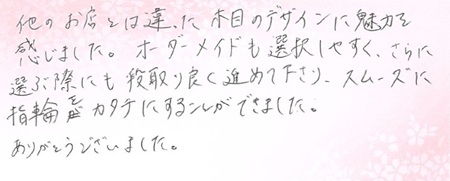 他のお店とは違った木目のデザインに魅力を
感じました。オーダーメイドも選択しやすく、さらに
選ぶ際にも段取り良く進めて下さり、スムーズに
指輪をカタチにすることができました。
ありがとうございました。